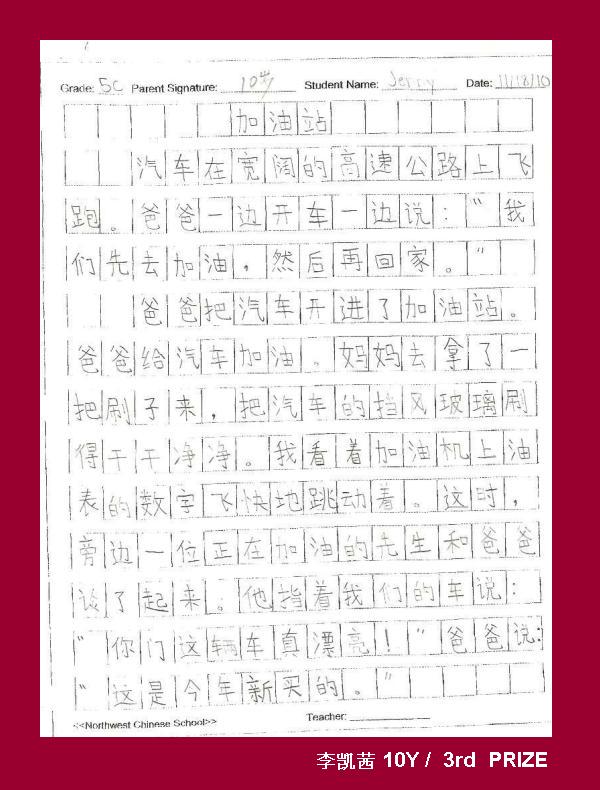 Grade: 5C Parent Signature: 10岁 Student Name: Jerry Date: 11/18/10
加油站
汽车在宽阔的高速公路上飞
跑。爸爸一边开车一边说：“我
们先去加油，然后再回家。”
爸爸把汽车开进了加油站。
爸爸给汽车加油。妈妈去拿了一
把刷子来，把汽车的挡风玻璃刷
得干干净净。我看着加油机上油
表的数字飞快地跳动着。这时，
旁边一位正在加油的先生和爸爸
谈了起来。他指着我们的车说：
“你门这辆车真漂亮！”爸爸说：
“这是今年新买的。”
<<Northwest Chinese School>> Teacher:
李凯茜 10Y / 3rd PRIZE